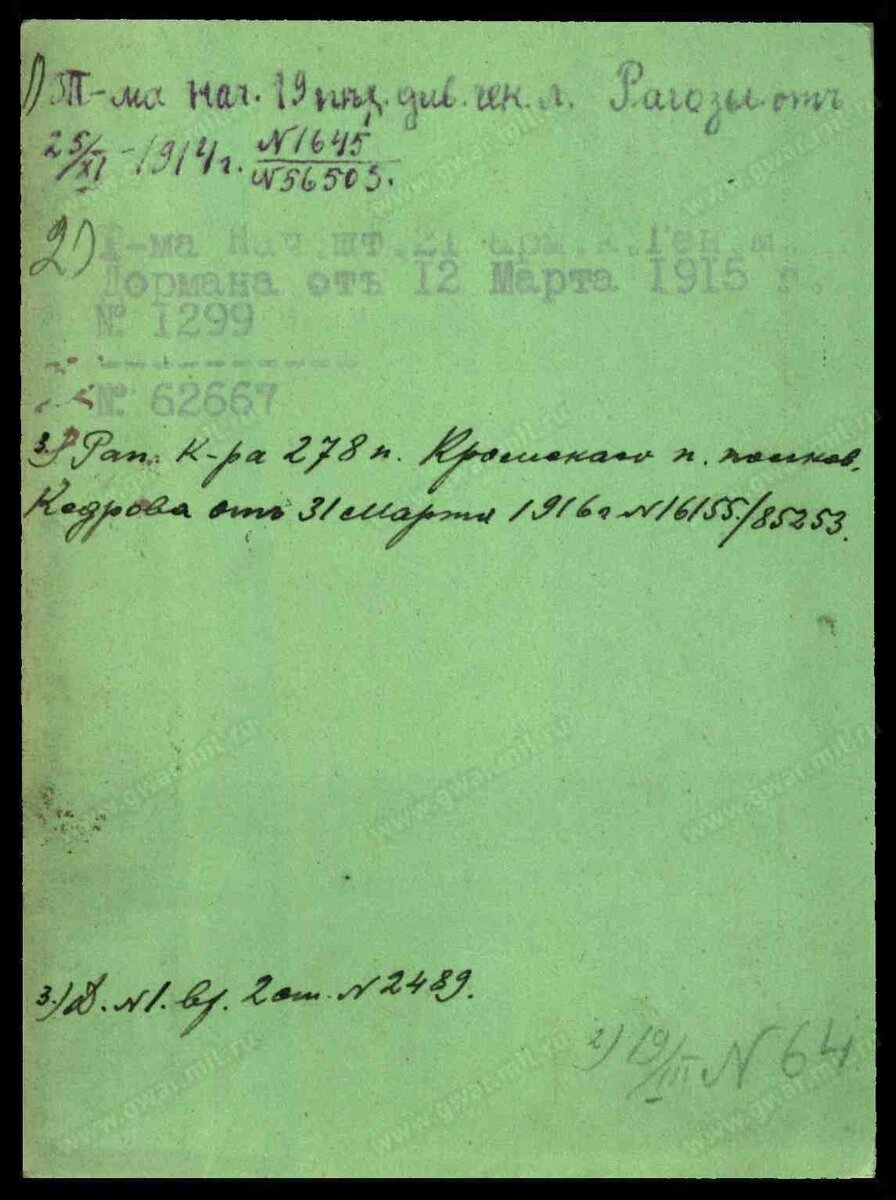 1) Т-ма нач. 19 пѣх. див. ген. л. Рагозы отъ
25/XI - 1914 г. N1645
N56503.
2) Т-ма Нач. шт. 21 арм. к. Ген. м.
Дормана отъ 12 Марта 1915 г.
№ 1299
------------
№ 62667
3.) Рап. К-ра 278 п. Кромскаго п. полков.
Кедрова отъ 31 Марта 1916 г N16155./85253.
3.) Д. N1. 2 от. N2489.
2) 19/III N 64.
www.gwar.mil.ru